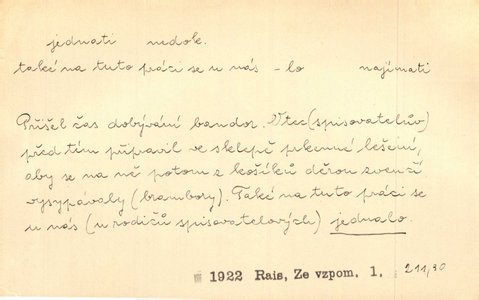 jednati nedok.
také na tuto práci se u nás -lo najímati
Přišel čas dobývání bandor. Otec (spisovatelův)
před tím připravil ve sklepě prkenné lešení,
aby se na ně potom z košíků děrou zvenčí
vysypávaly (brambory). Také na tuto práci se
u nás (u rodičů spisovatelových) jednalo.
1922 Rais, Ze vzpom. 1. 211,30